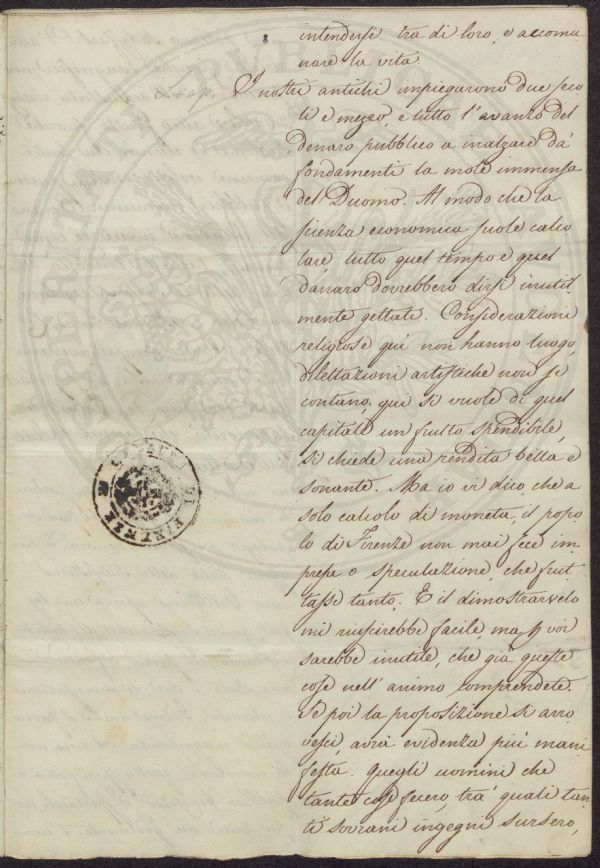 intendersi tra di loro, e accomu
nare la vita
I nostri antichi impiegarono due seco
li e mezzo, e tutto l'avanzo del
denaro pubblico a inalzare da'
fondamenti la mole immensa
del Duomo. Al modo che la
scienza economica suole calco
lare, tutto quel tempo e quel
danaro dovrebbero dirsi inutil
mente gettati. Considerazioni
religiose qui non hanno luogo,
dilettazioni artistiche non si
contano; qui si vuole di quel
capitale un frutto spendibile,
si chiede una rendita bella e
sonante. Ma io vi dico, che a
solo calcolo di moneta, il popo
lo di Firenze non mai fece im
presa o speculazione, che frut
tasse tanto. E il dimostrarvelo
mi riuscirebbe facile, ma p voi
sarebbe inutile, che già queste
cose nell'animo comprendete.
Se poi la proposizione si arro
vesci, avrà evidenza più mani
festa. Quegli uomini che
tante cose fecero, tra' quali tan
ti sovrani ingegni sursero,
DI FIRENZE